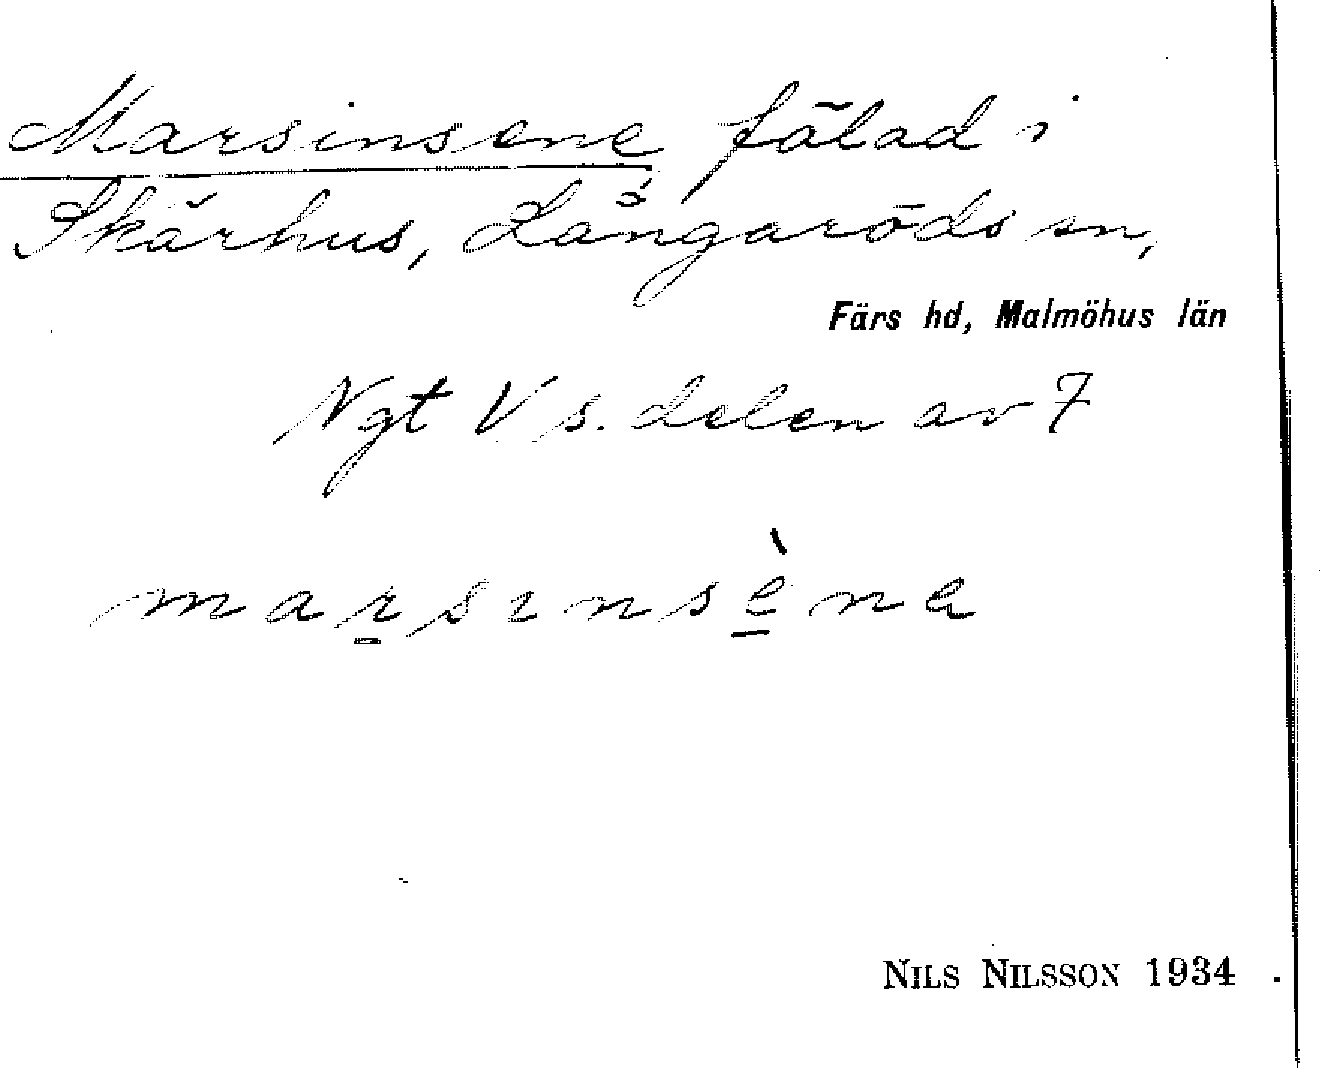 Marsinsene fälad i
Skärhus, Långaröds sn,
Färs hd, Malmöhus län
Ngt V s. delen av 7
marsınsène
NILS NILSSON 1934